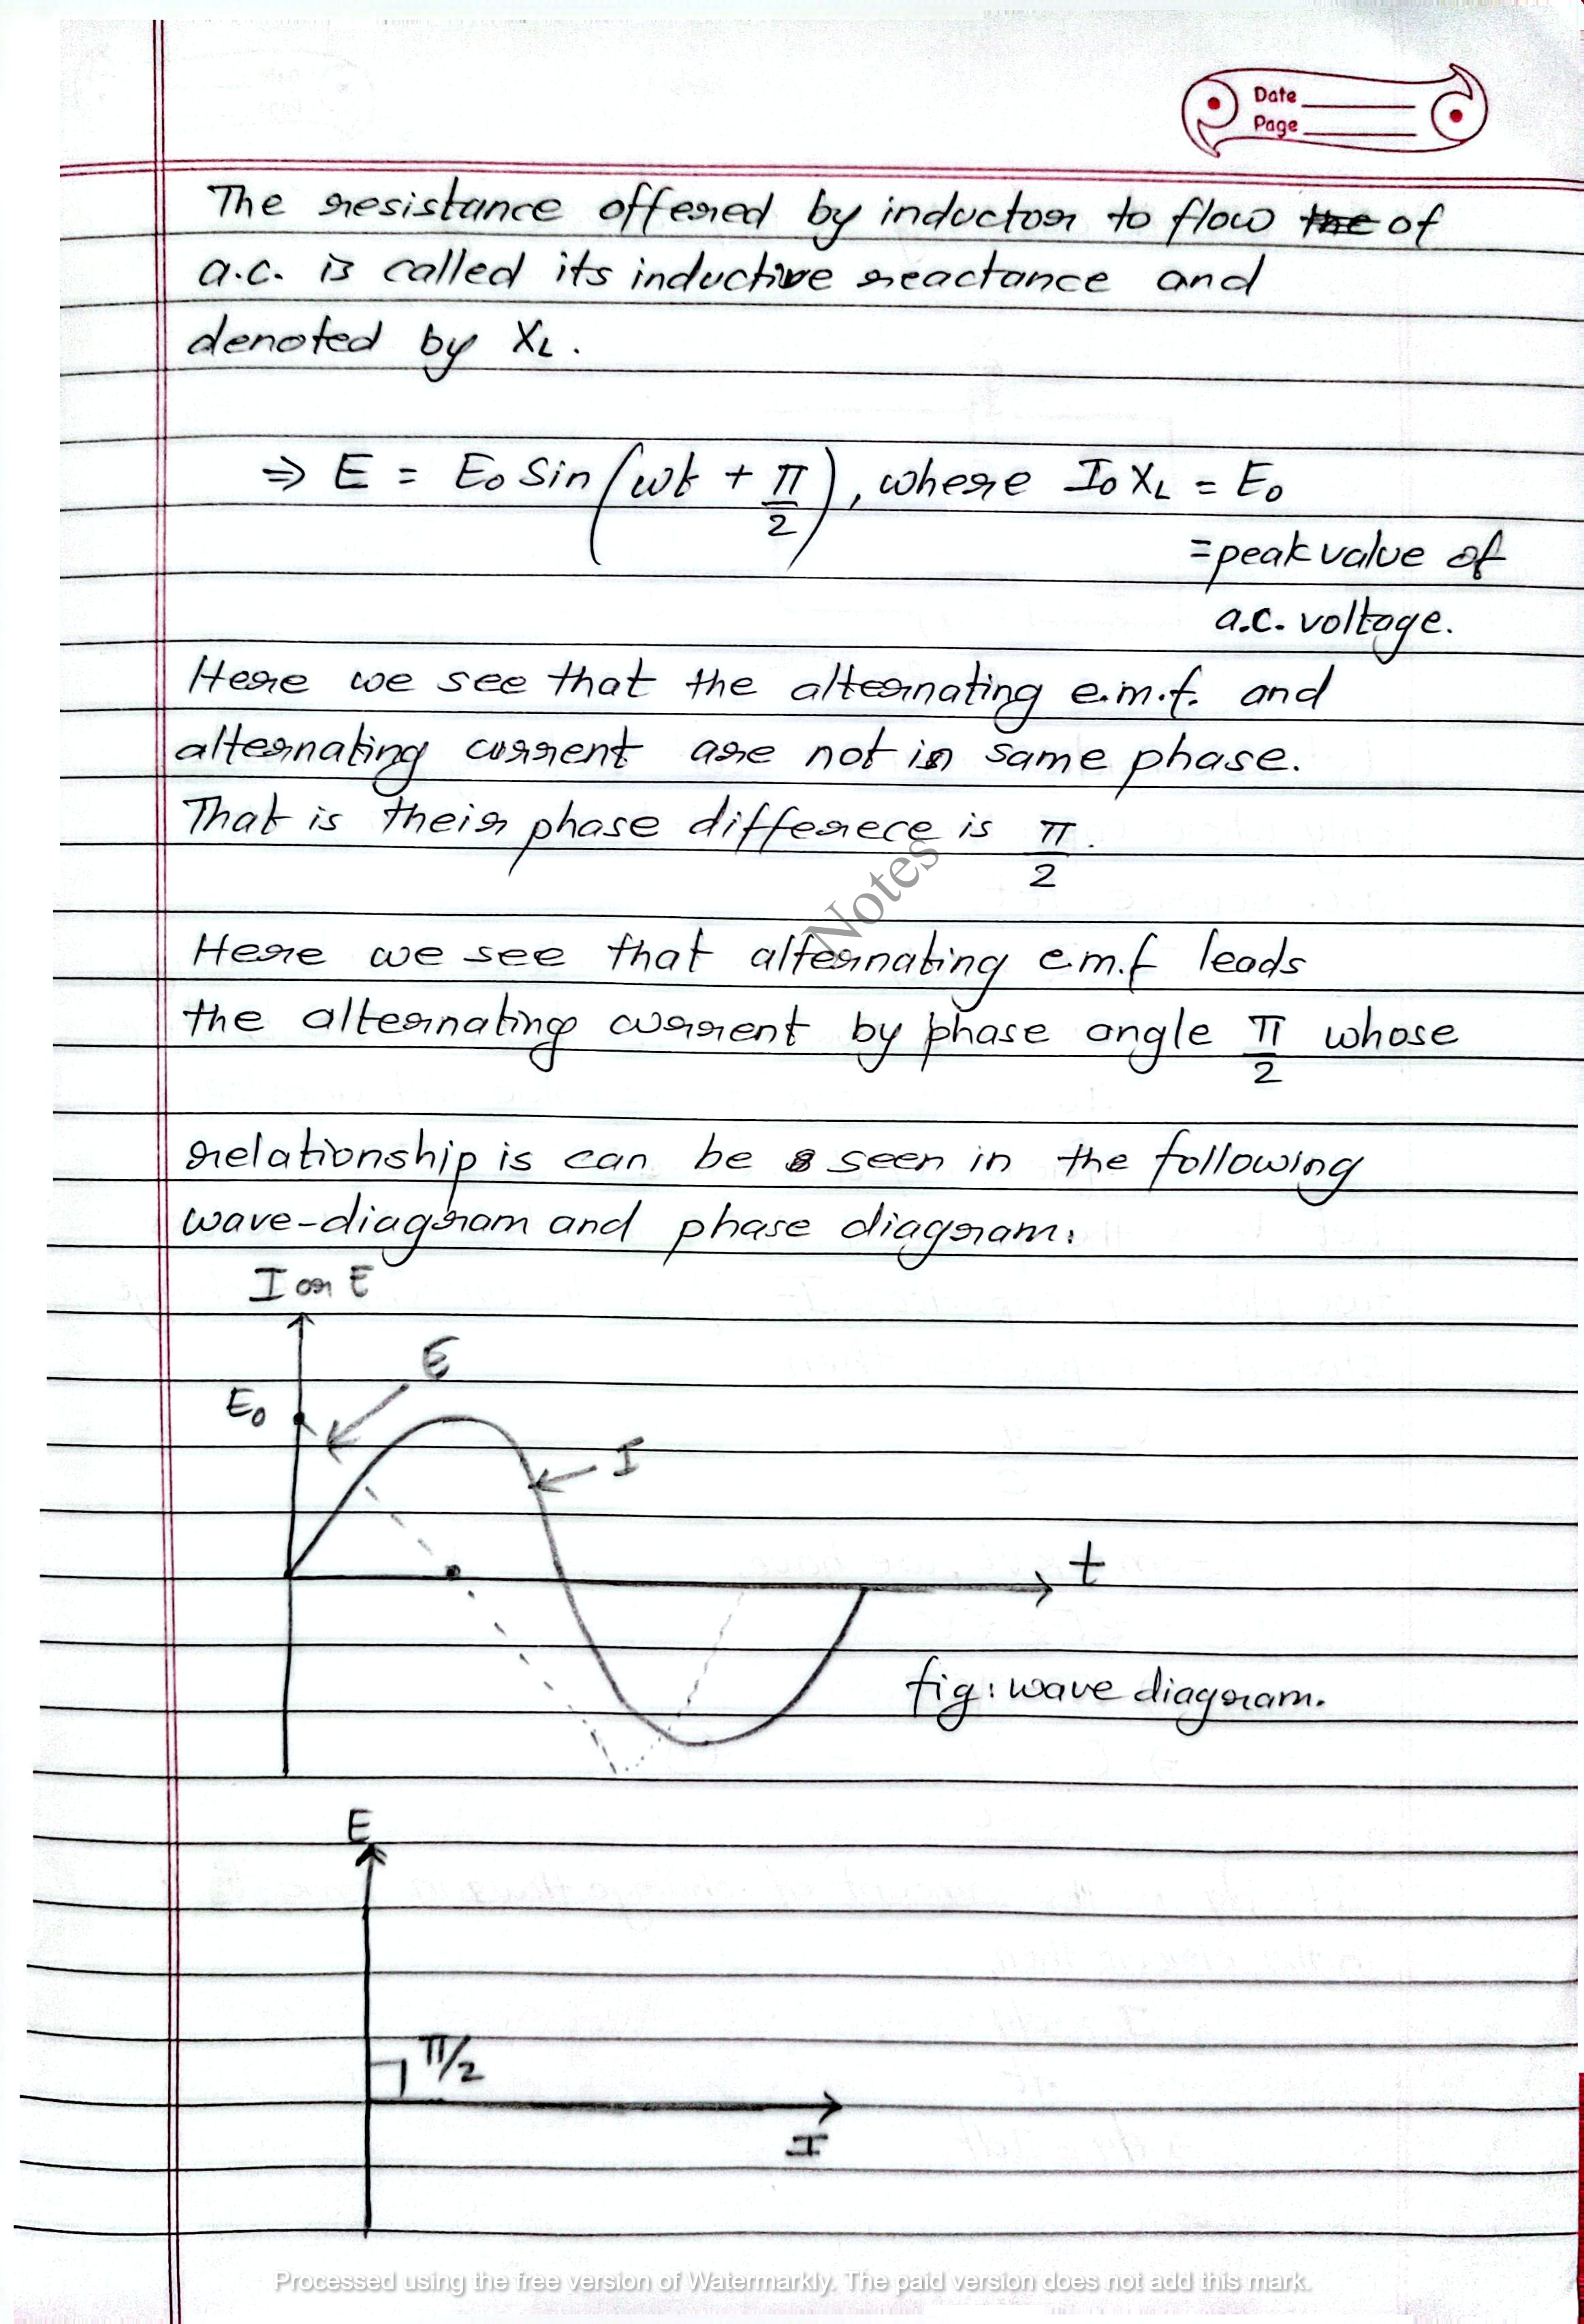 Date
Page
The resistance offered by inductor to flow the of
a.c. is called its inductive reactance and
denoted by XL.
⇒ E = E₀ Sin(ωt + π/2), where I₀ XL = E₀
= peak value of
a.c. voltage.
Here we see that the alternating e.m.f. and
alternating current are not in same phase.
That is their phase differece is π/2.
Notes
Here we see that alternating e.m.f leads
the alternating current by phase angle π/2 whose
relationship is can be seen in the following
wave-diagram and phase diagram:
I or E
E
E₀
I
t
fig: wave diagram.
E
π/2
I
Processed using the free version of Watermarkly. The paid version does not add this mark.